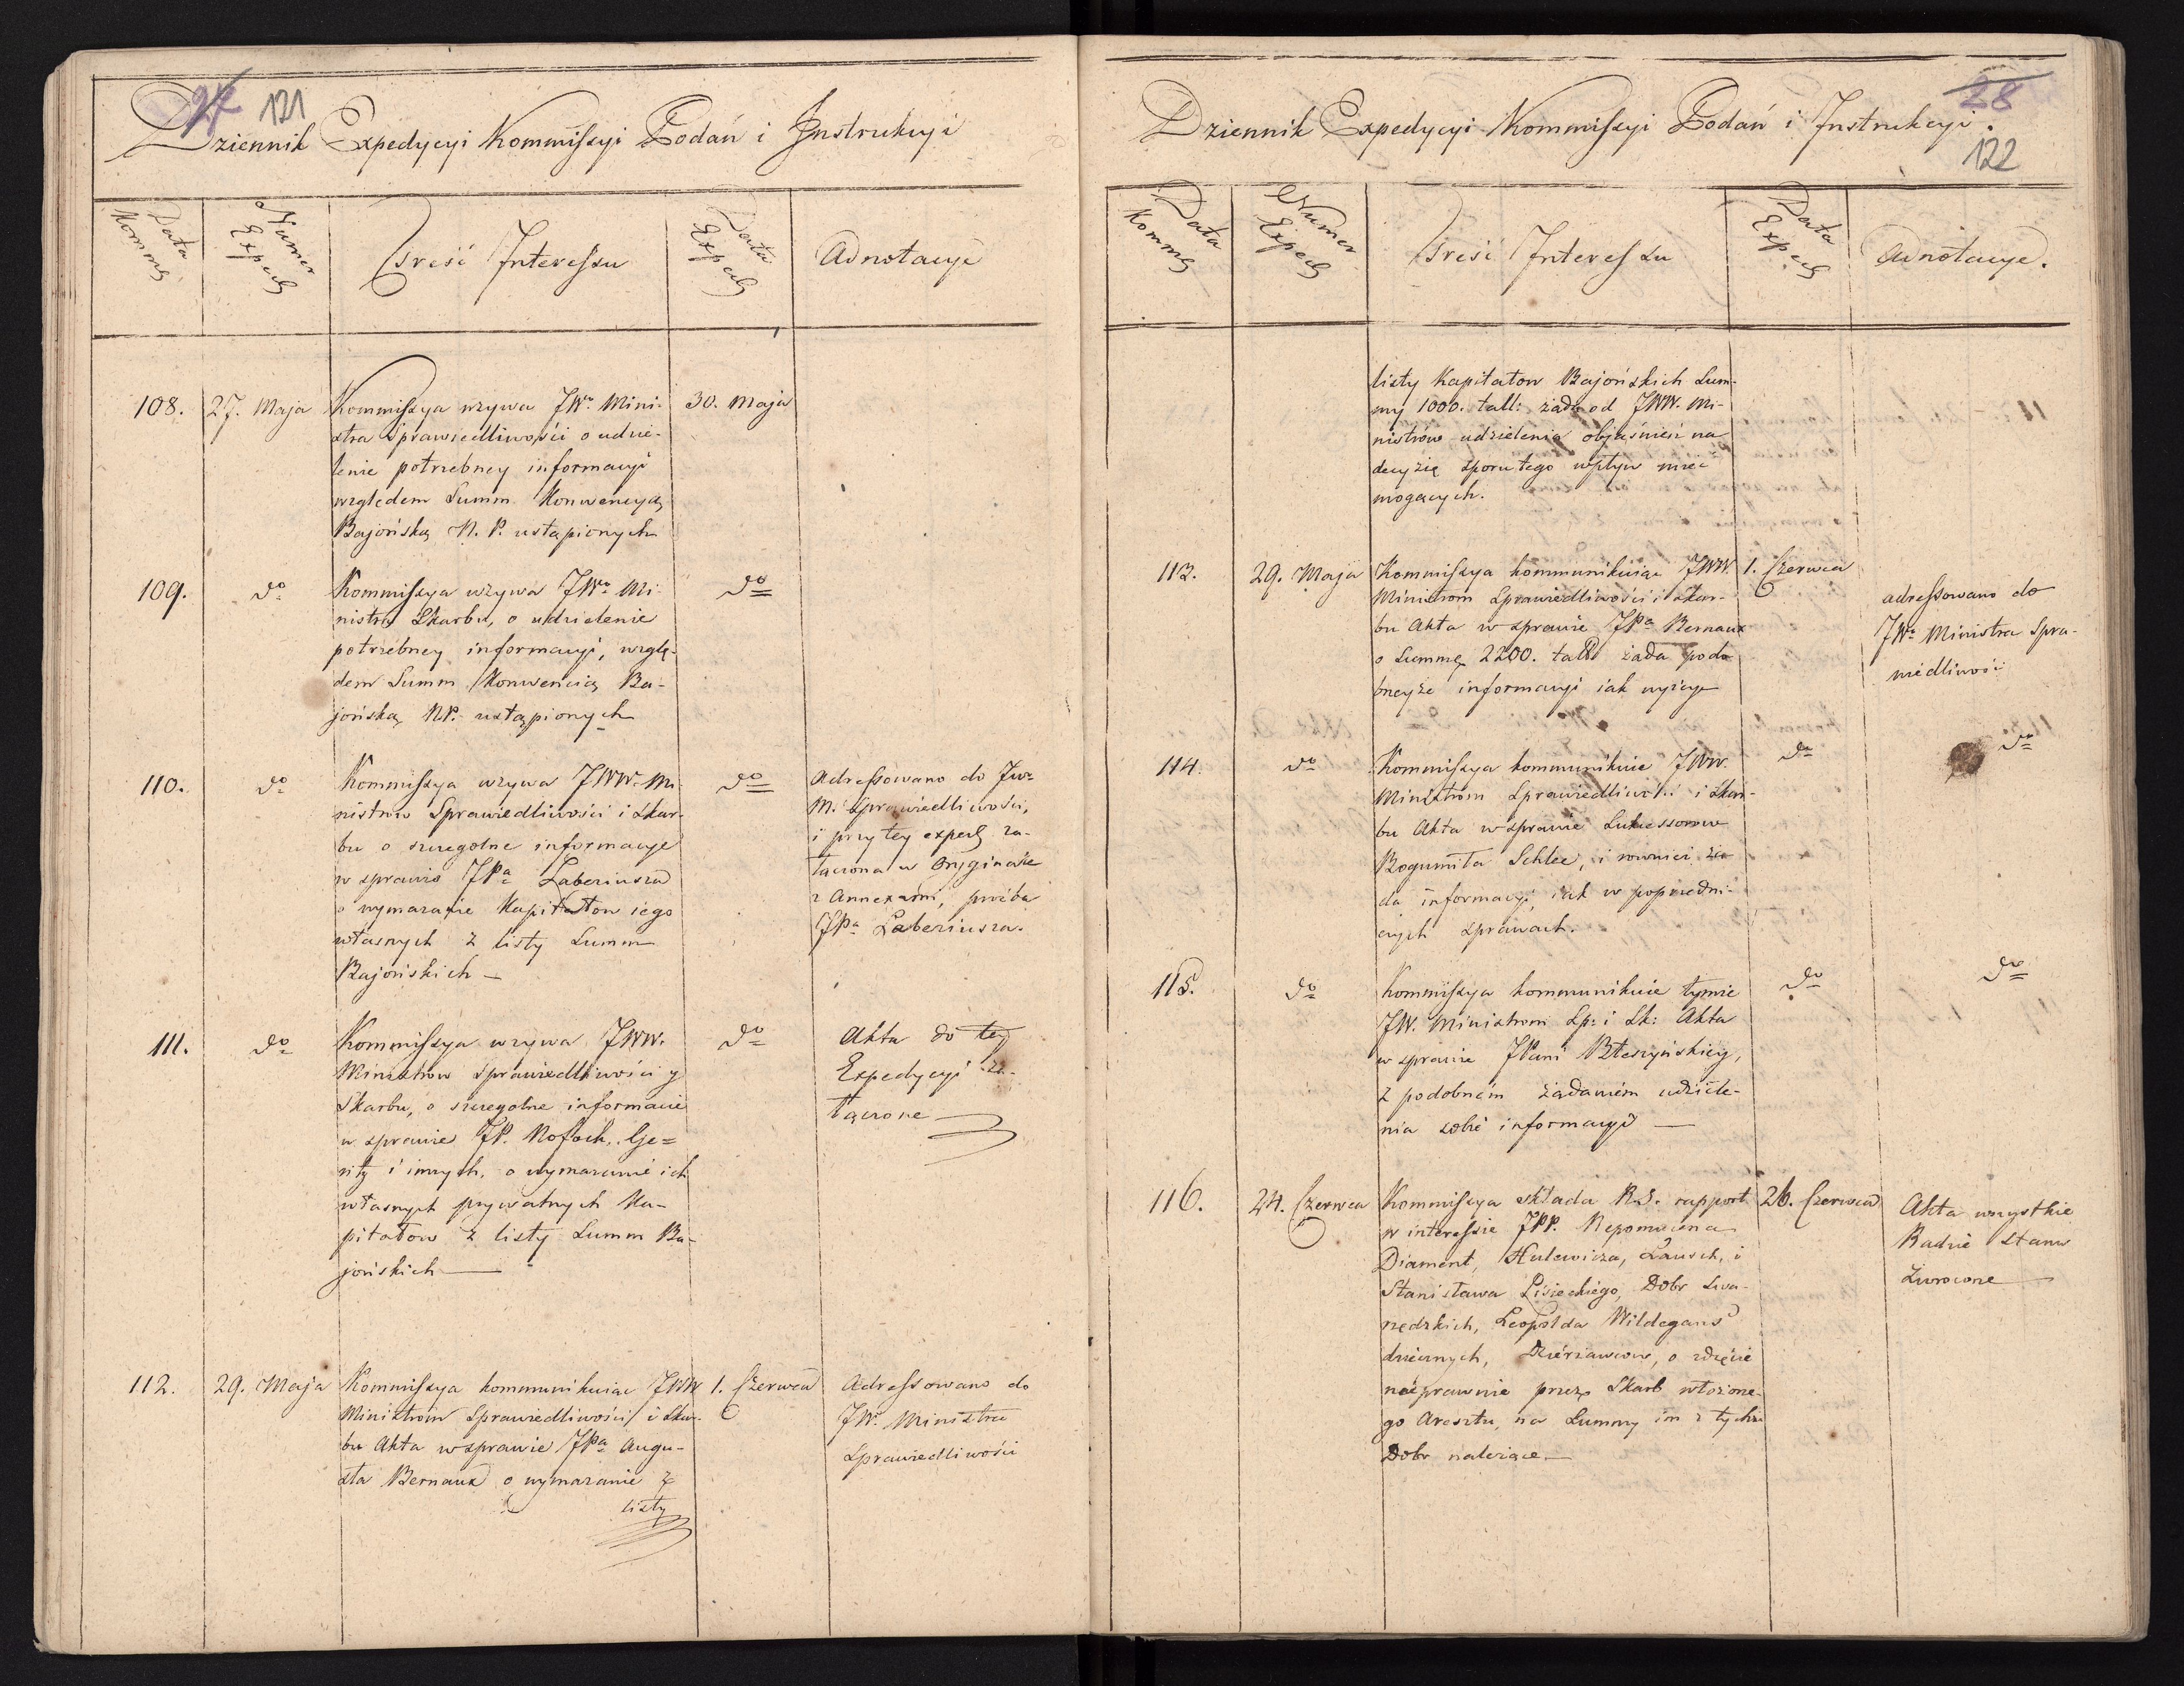 27 121
Dziennik Expedycyi Kommissyi Podań i Instrukcyi
Data Kommis
Numer Exped
Treść Interessu
Data Exped
Adnotacye
108. 27. Maja Kommissya wzywa JWo. Mini- 30. Maja
stra Sprawiedliwości o udzie-
lenie potrzebney informacyi
względem Summ Konwencyą
Bajońską N. P. ustąpionych
109. do Kommissya wzywa JWo Mi- do
nistra Skarbu, o udzielenie
potrzebney informacyi, wzglę-
dem Summ Konwencią Ba-
jońską NP. ustąpionych
110. do Kommissya wzywa JWW. Mi- do
nistrów Sprawiedliwości i Skar-
bu o szczegolne informacye
w sprawie JPa Laberiusza
o wymazanie Kapitałow iego
własnych z listy Summ
Bajońskich —
Adressowano do Jwo
M. Sprawiedliwości,
i przy tey exped za-
łączona w Oryginale
z Annexami, proźba
JPa Laberiusza.
111. do Kommissya wzywa JWW. do
Ministrow Sprawiedliwości y
Skarbu, o szczegolne informacie
w sprawie JP. Nosoch. Ge=
ritz i innych, o wymazanie ich
własnych prywatnych Ka-
pitałow z listy Summ Ba-
jońskich —
Akta do tey
Expedycyi za-
łączone —
112. 29. Maja Kommissya kommunikuiąc JWW 1. Czerwca
Ministrom Sprawiedliwości i Skar-
bu Akta w sprawie JPa Augu-
sta Bernaux o wymazanie z
listy
Adressowano do
JWo. Ministra
Sprawiedliwości
28
Dziennik Expedycyi Kommissyi Podań i Instrukcyi.
122
Data Kommis
Numer Exped
Treść Interessu
Data Exped
Adnotacye.
listy Kapitałow Bajońskich Sum-
my 1000. tall: żąda od JWW. Mi-
nistrów udzielenia objaśnień na
decyzię sporu tego wpływ mieć
mogących.
113. 29. Maja Kommissya kommunikuiąc JWW. 1. Czerwca
Ministrom Sprawiedliwości i Skar-
bu Akta w sprawie JPa Bernaux
o Summę 2200. tall żąda podo-
bneyże informacyi iak wyżey
adressowano do
JWo Ministra Spra-
wiedliwości
114. do Kommissya kommunikuie JWW. do do
Ministrom Sprawiedliwości i Skar-
bu Akta w sprawie Sukcessorow
Bogumiła Schlee, i rownież żą-
da informacyi, iak w poprzedni-
czych sprawach.
115. do Kommissya kommunikuie tymże do do
JW. Ministrom Sp: i Sk: Akta
w sprawie JPani Błeszyńskiey,
z podobném żądaniem udziele-
nia sobie informacyi —
116. 24. Czerwca Kommissya składa R.S. rapport 26. Czerwca
w interessie JPP. Nepomucena
Diament, Hulewicza, Lausch, i
Stanisława Lisieckiego, Dobr Swa-
rzędzkich, Leopolda Wildegans
dziecznych, Dzierżawcow, o zdięcie
nieprawnie przez Skarb włożone-
go Aresztu, na Summy im z tychże
Dobr należące —
Akta wszystkie
Radzie Stanu
Zwrocone —